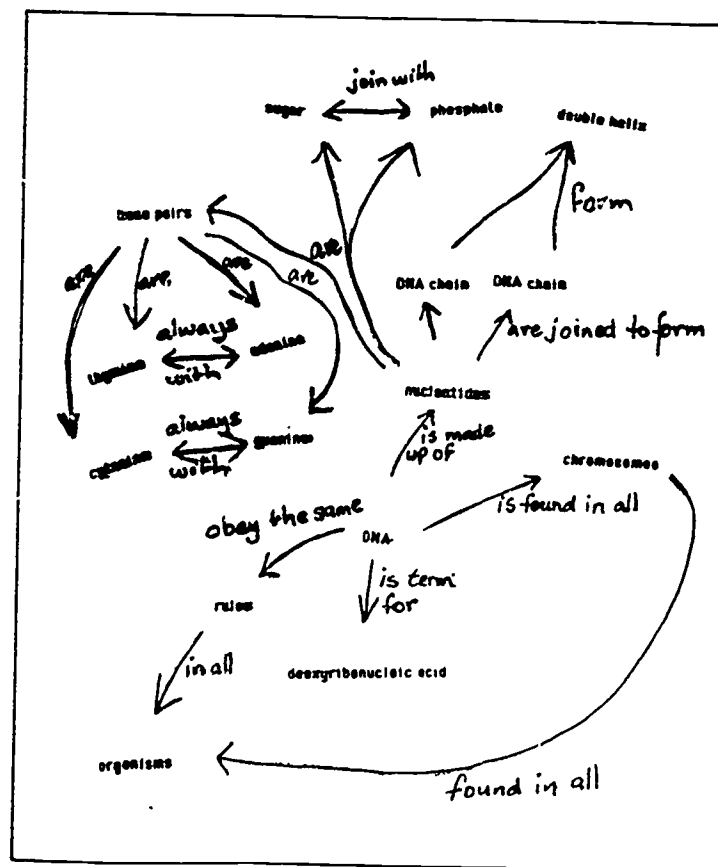 join with
sugar
phosphate
double helix
form
base pairs
are
are
are
are
are
DNA chain
DNA chain
always
thymine
adenine
with
are joined to form
nucleotides
always
cytosine
guanine
with
is made
up of
chromosomes
obey the same
DNA
is found in all
is term
for
rules
in all
deoxyribonucleic acid
organisms
found in all